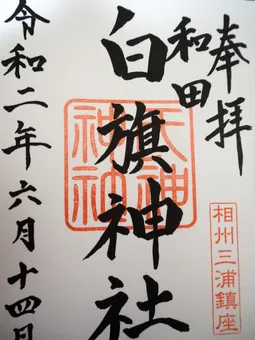 奉拝
和田
白旗神社
令和二年六月十四日
相州三浦鎮座